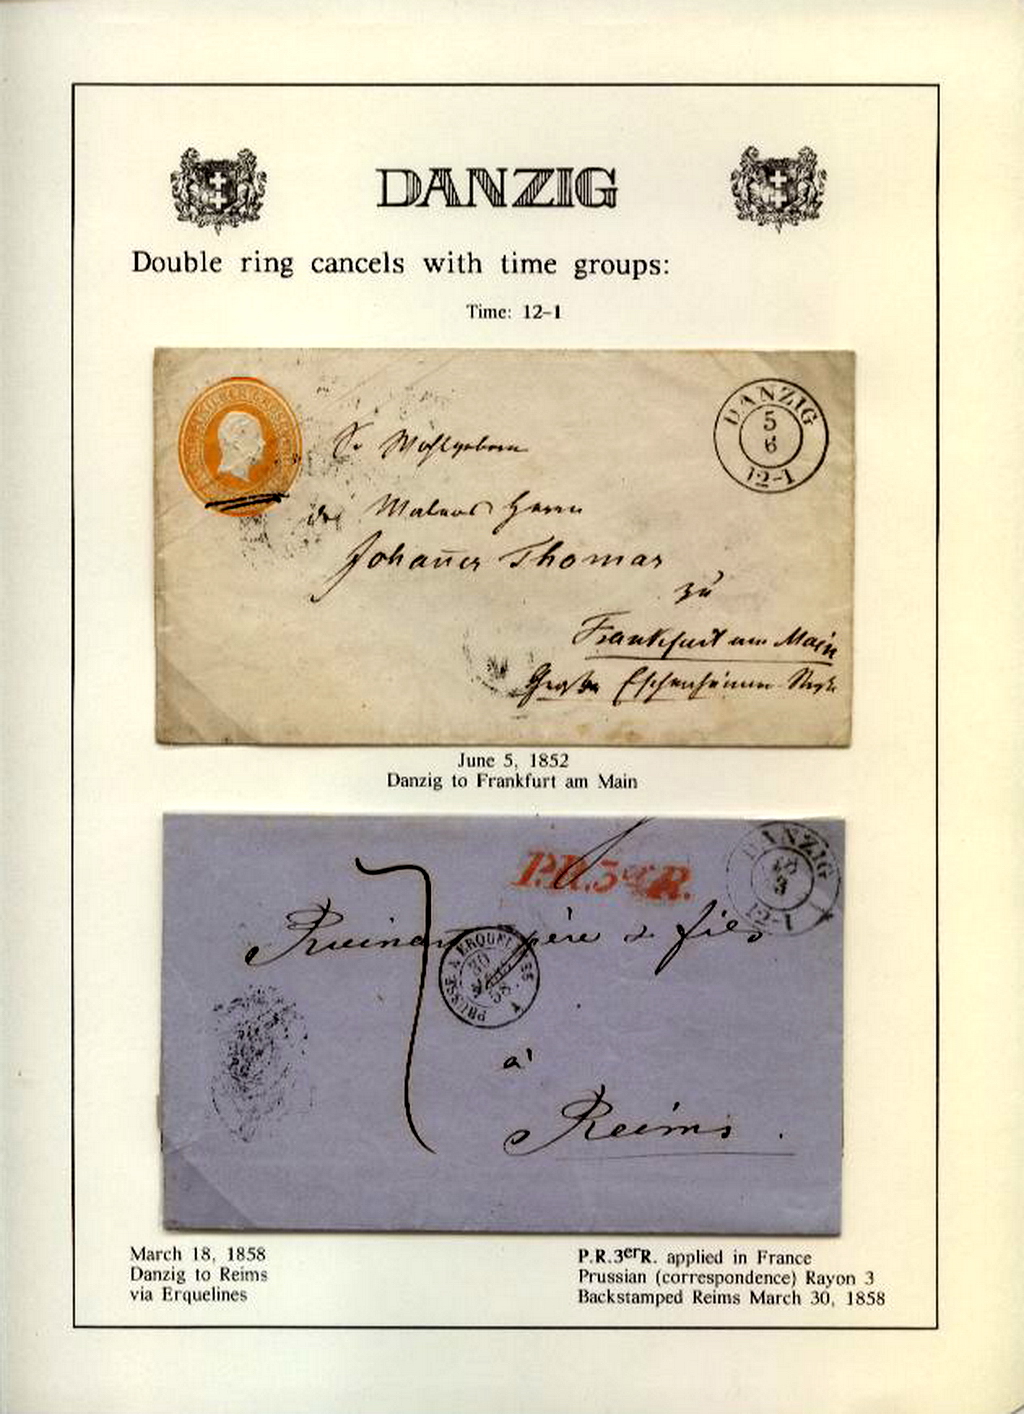 DANZIG
Double ring cancels with time groups:
Time: 12-1
DANZIG
5
6
12-1
Sr Wohlgeboren
Herrn
Johannes Thomas
zu
Frankfurt am Main
Große Eschenheimer
June 5, 1852
Danzig to Frankfurt am Main
P.R.3erR.
DANZIG
3
12-1
père & fils
PRUSSE A ERQUELINES
30
58
7
à
Reims.
March 18, 1858
Danzig to Reims
via Erquelines
P.R.3erR. applied in France
Prussian (correspondence) Rayon 3
Backstamped Reims March 30, 1858